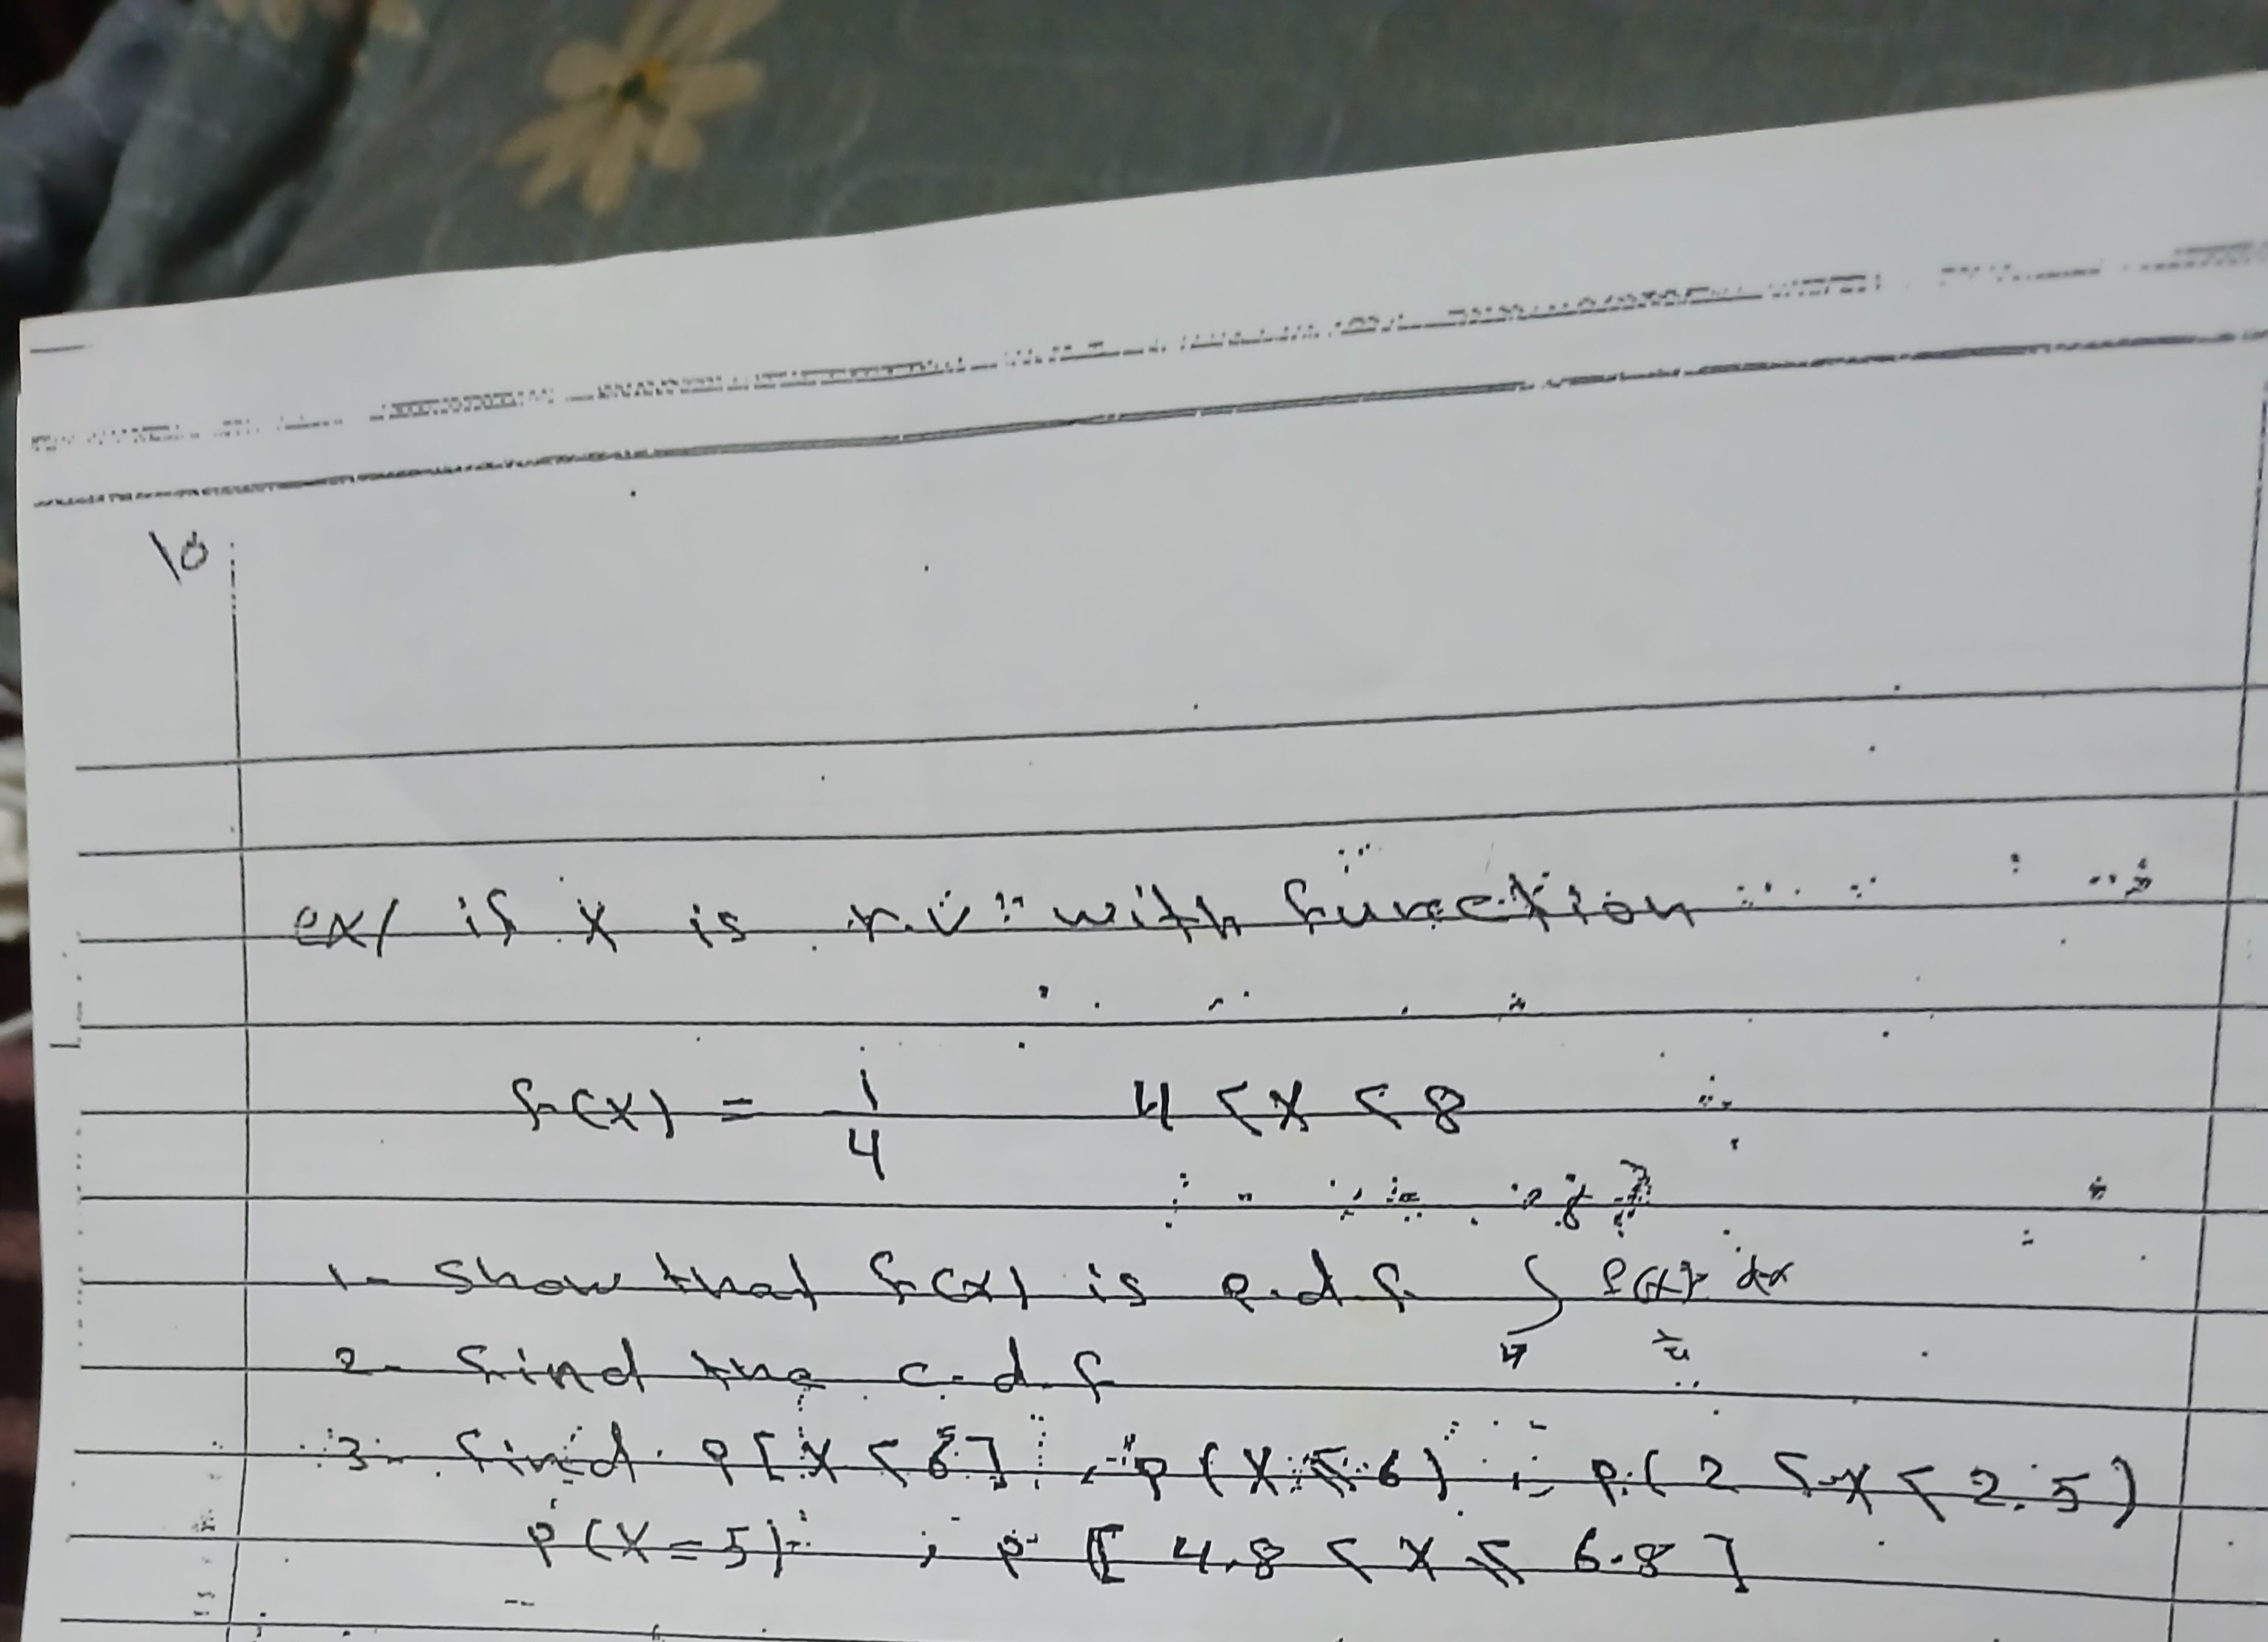 10
ex/ if X is r.v. with function
f(x) = 1/4    4 < x < 8
1- show that f(x) is p.d.f ∫ f(x) dx
2- find the c.d.f
3- find P[X < 6] , P(X ≤ 6) , P(2 < X < 2.5)
P(X = 5) , P[4.8 < X ≤ 6.8]